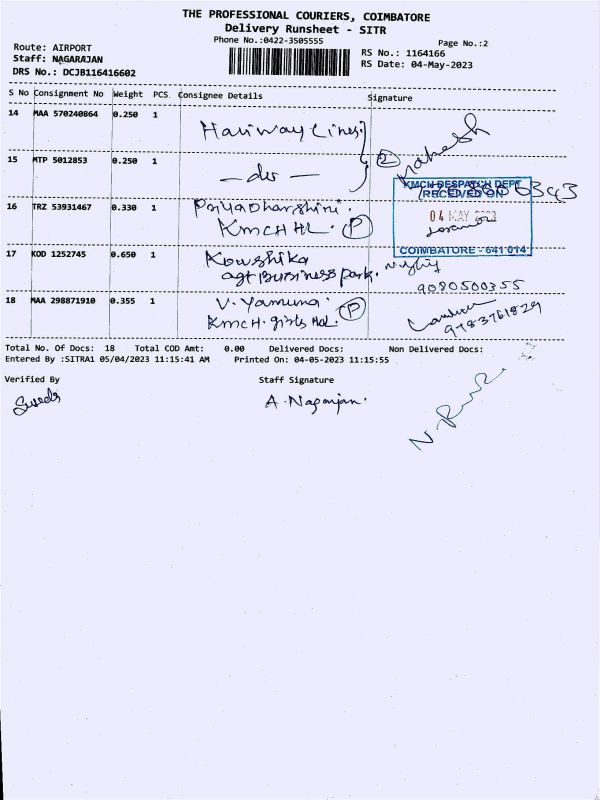 THE PROFESSIONAL COURIERS, COIMBATORE
Delivery Runsheet - SITR
Phone No.:0422-3505555
Page No.:2
Route: AIRPORT
Staff: NAGARAJAN
DRS No.: DCJB116416602
RS No.: 1164166
RS Date: 04-May-2023
S No Consignment No Weight PCS. Consignee Details Signature
14 MAA 570240864 0.250 1 Hariway Lines
Mahesh
15 MTP 5012853 0.250 1 — do — 2
KMCH DESPATCH DEPT
RECEIVED ON
04 MAY 2023
COIMBATORE - 641 014
16 TRZ 53931467 0.330 1 Priyadharshini.
KMCH HL. P
17 KOD 1252745 0.650 1 Koushika
agt Business park.
9080500355
18 MAA 298871910 0.355 1 V. Yamuna.
KMCH. girls Hol. P
9783761829
Total No. Of Docs: 18 Total COD Amt: 0.00 Delivered Docs: Non Delivered Docs:
Entered By :SITRA1 05/04/2023 11:15:41 AM Printed On: 04-05-2023 11:15:55
Verified By Staff Signature
A. Nagarajan.